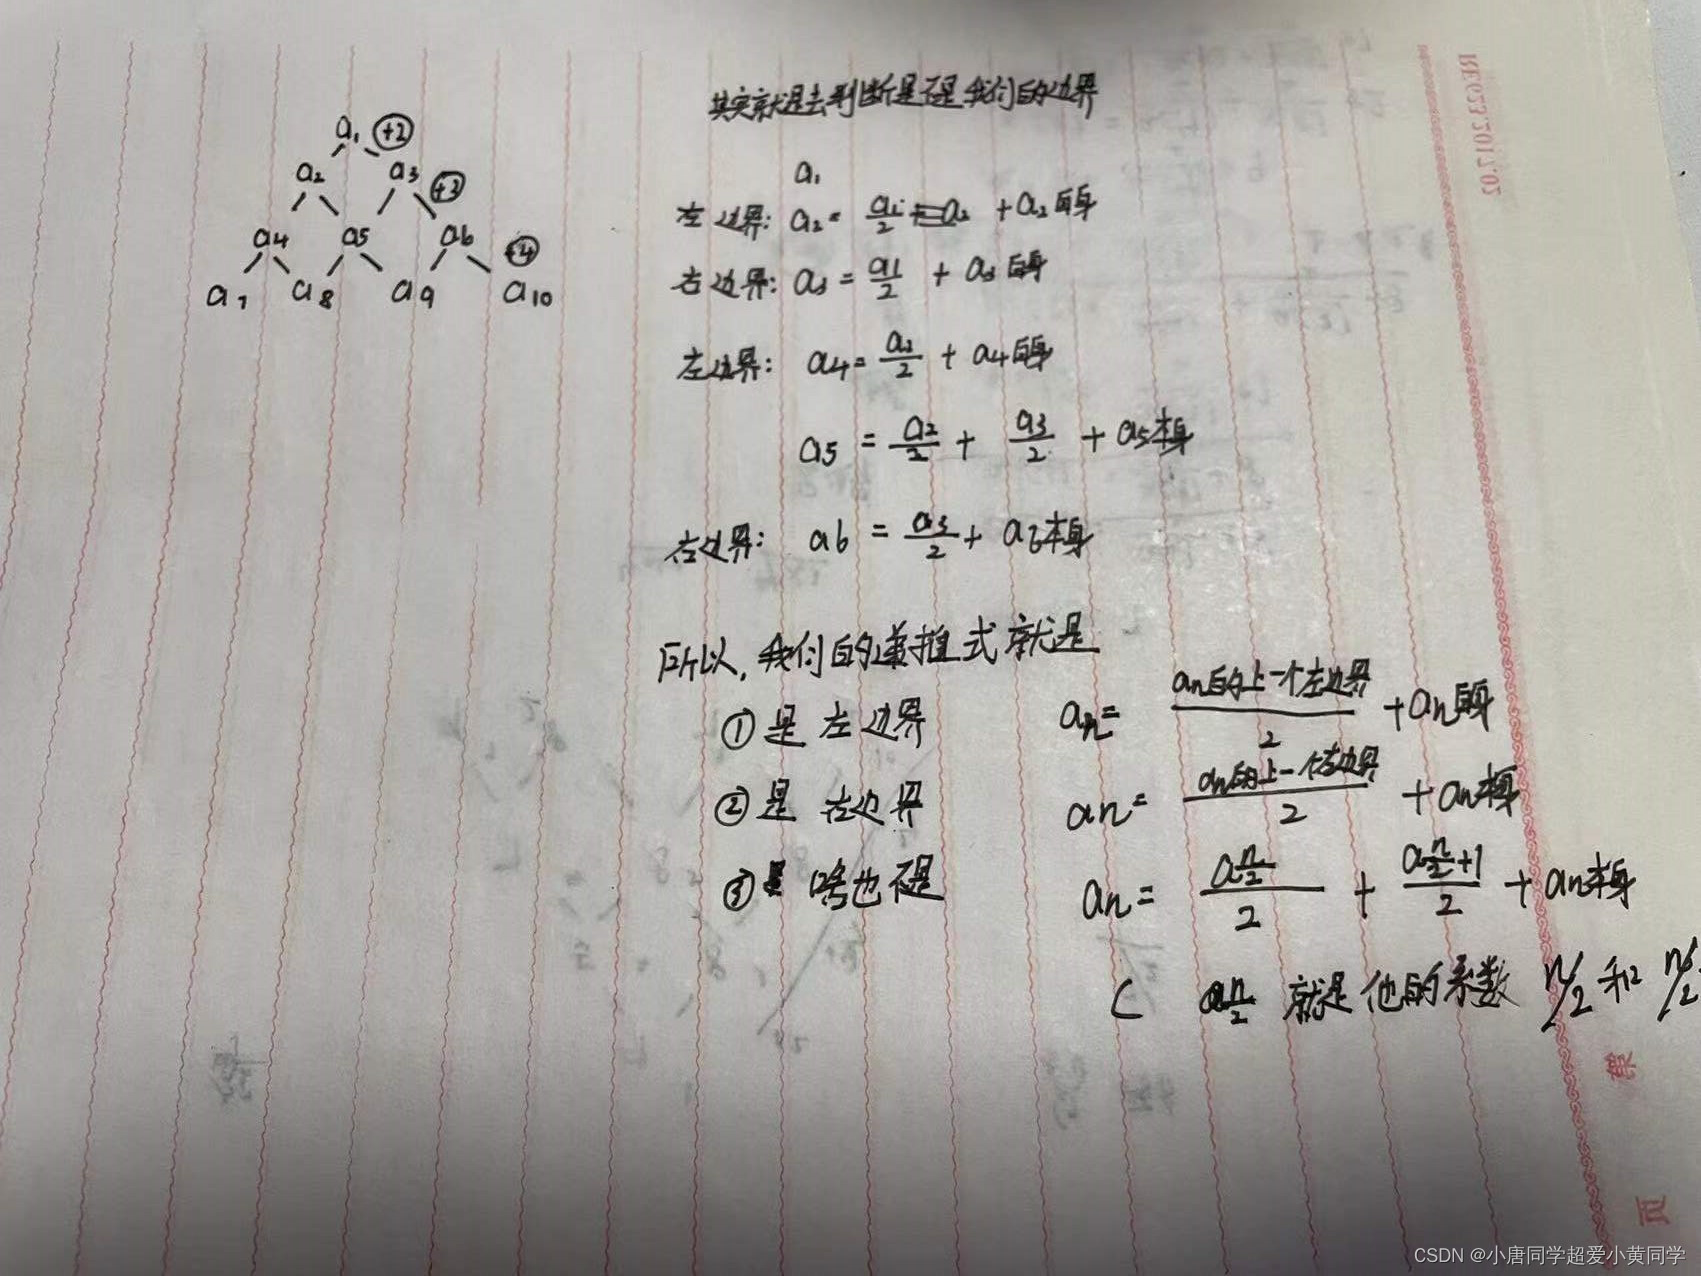 其实就是去判断是不是我们的边界
a₁ +2
a₂ a₃ +3
a₄ a₅ a₆ +4
a₇ a₈ a₉ a₁₀
a₁
左边界: a₂ = a₁/2 + a₂自身
右边界: a₃ = a₁/2 + a₃自身
左边界: a₄ = a₂/2 + a₄自身
a₅ = a₂/2 + a₃/2 + a₅本身
右边界: a₆ = a₃/2 + a₆本身
所以,我们的递推式就是
① 是左边界 an = an的上一个左边界/2 + an自身
② 是右边界 an = an的上一个右边界/2 + an本身
③ 啥也不是 an = a n/2 /2 + a n/2+1 /2 + an本身
( a n/2 就是他的系数 n/2 和 n/2
RE623.2017.02
第
页
CSDN @小唐同学超爱小黄同学